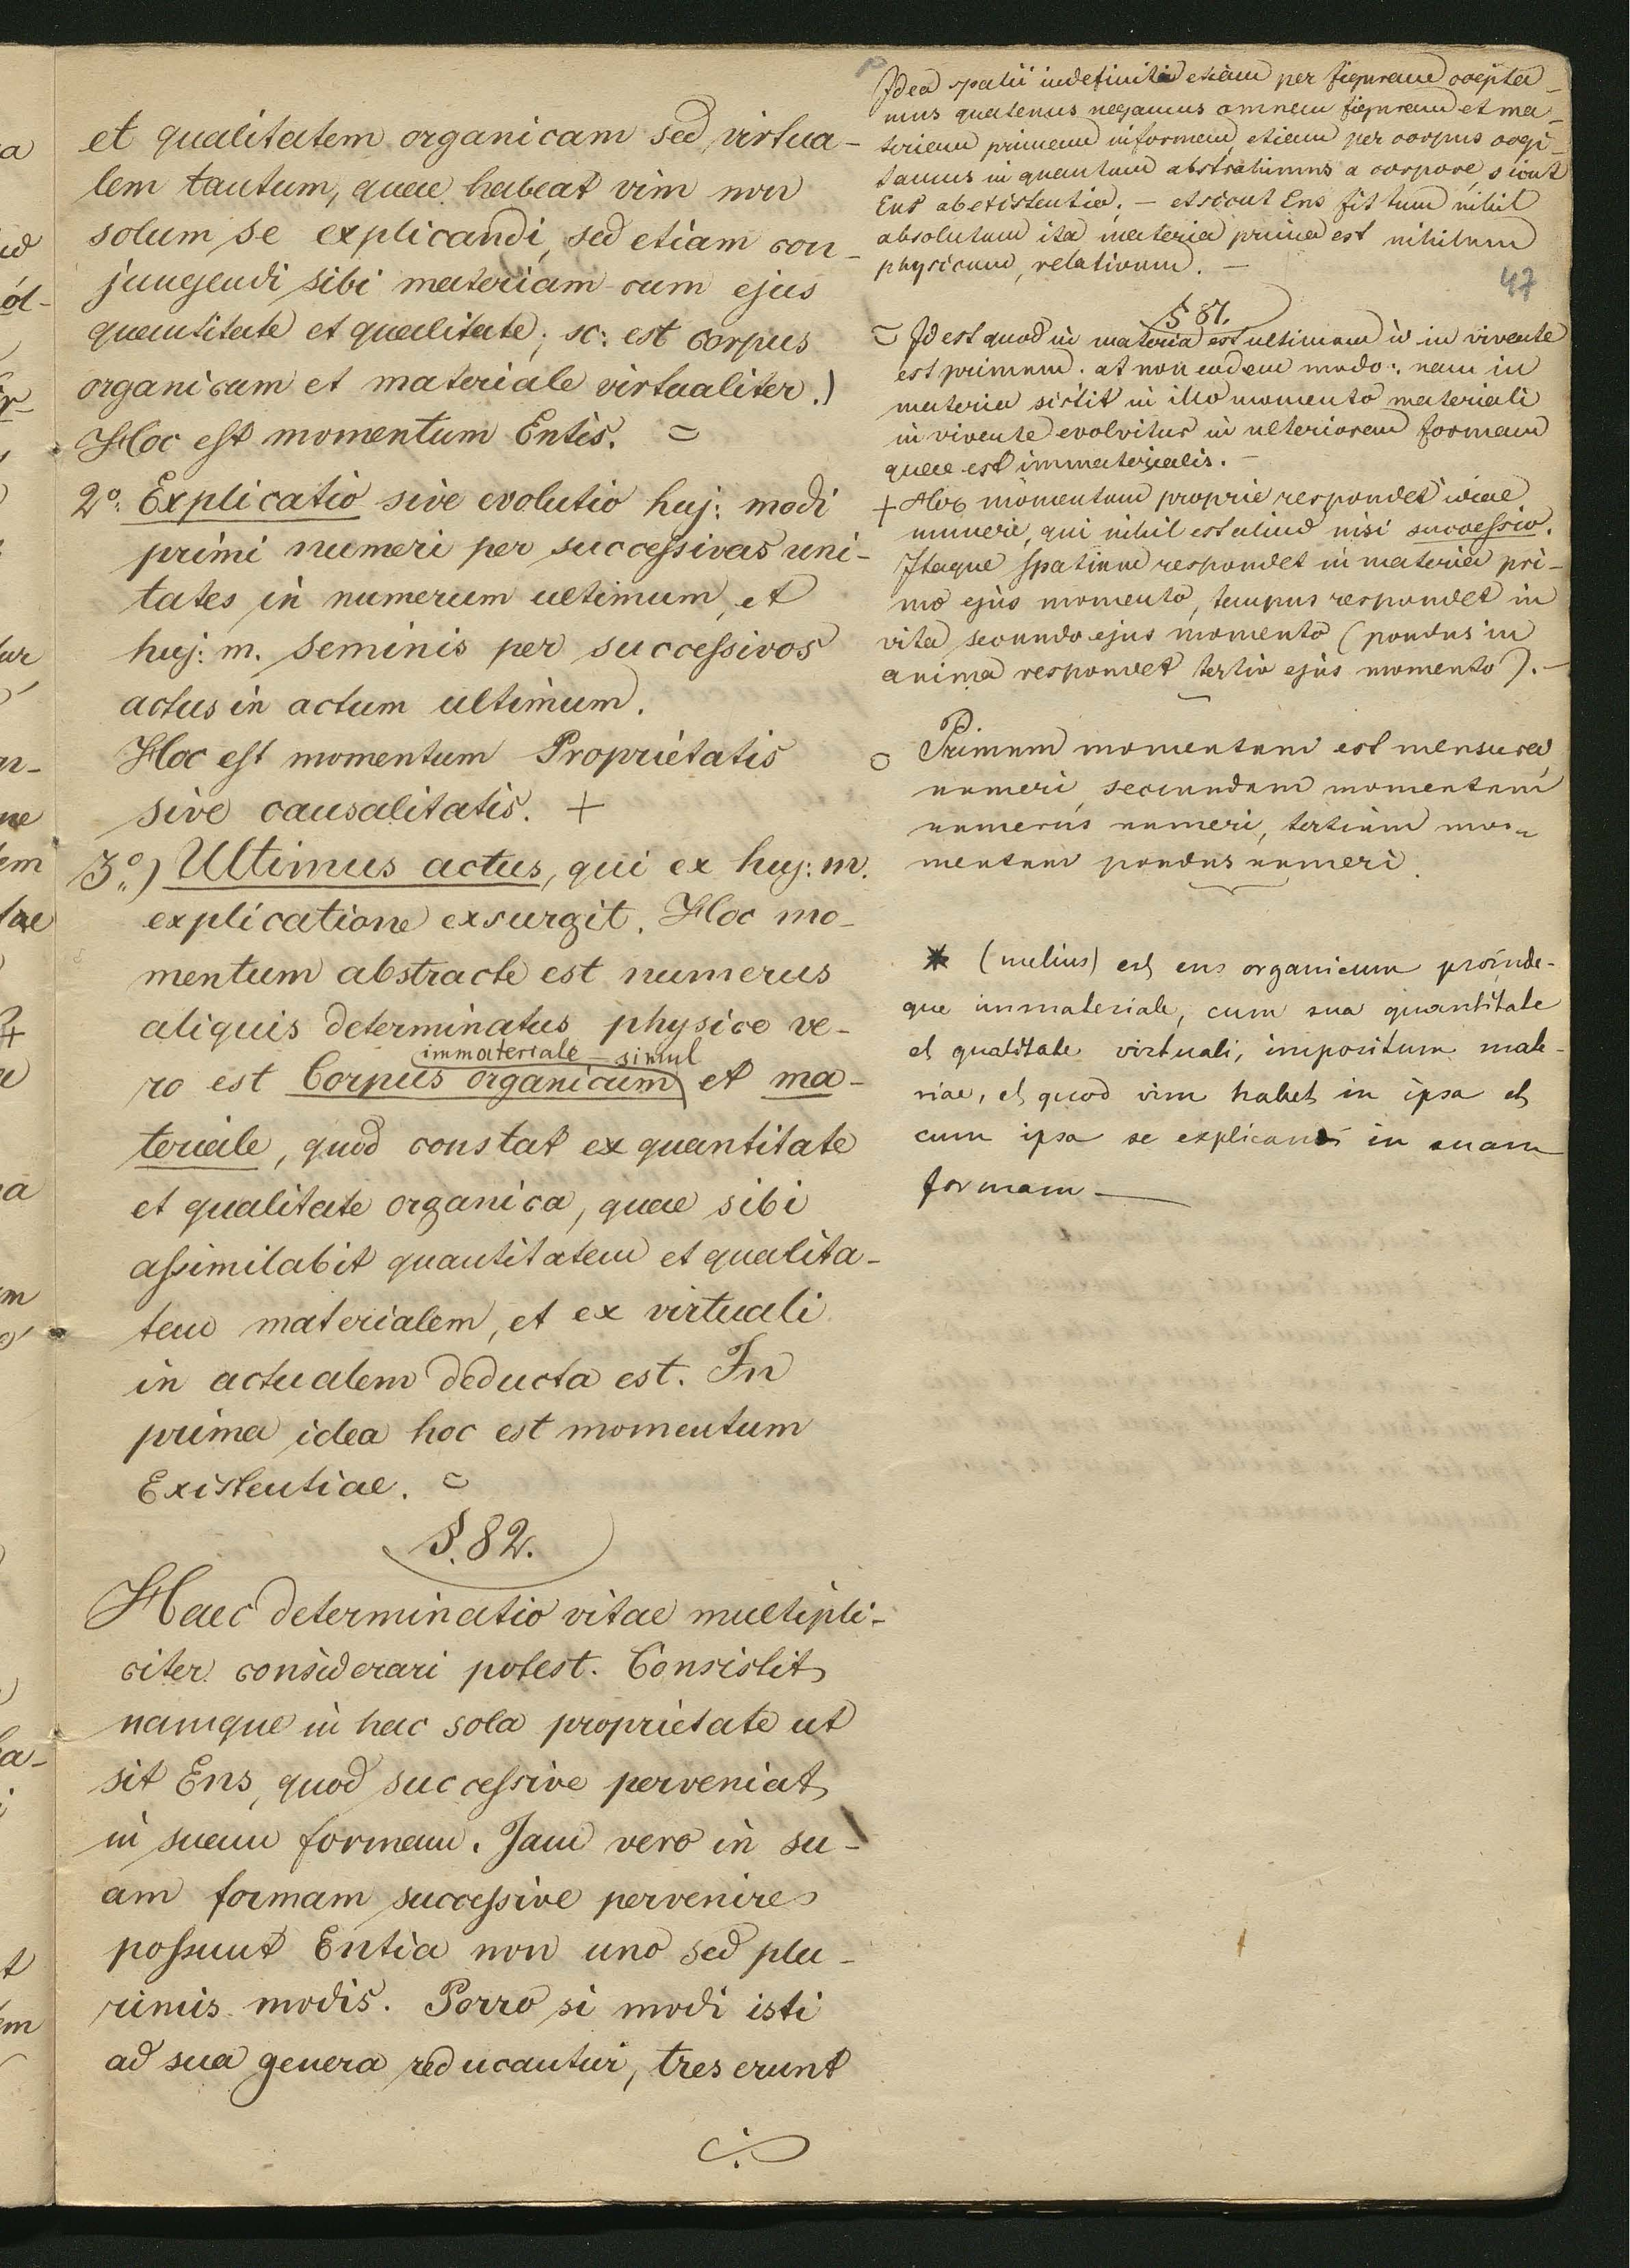 et qualitatem organicam sed virtua-
lem tantum, quae habeat vim non
solum se explicandi, sed etiam con-
jungendi sibi materiam cum ejus
quantitate et qualitate; sc: est corpus
organicum et materiale virtualiter.)
Hoc est momentum Entis. =
2°: Explicatio sive evolutio huj: modi
primi numeri per successivas uni-
tates in numerum ultimum, et
huj: m. seminis per successivos
actus in actum ultimum.
Hoc est momentum Proprietatis
sive causalitatis. +
3°) Ultimus actus, qui ex huj: m.
explicatione exsurgit. Hoc mo-
mentum abstracte est numerus
aliquis determinatus physice ve-
immateriale - simul
ro est Corpus organicum et ma-
teriale, quod constat ex quantitate
et qualitate organica, quae sibi
assimilabit quantitatem et qualita-
tem materialem, et ex virtuali
in actualem deducta est. In
prima idea hoc est momentum
Existentiae. =
§. 82.
Haec determinatio vitae multipli-
citer considerari potest. Consistit
namque in hac sola proprietate ut
sit Ens, quod successive perveniat
in suam formam. Jam vero in su-
am formam successive pervenire
possunt Entia non uno sed plu-
rimis modis. Porro si modi isti
ad sua genera reducantur, tres erunt
Idea spatii indefiniti etiam per figuram
mus quatenus negamus omnem figuram et ma-
teriam primam informem, etiam per corpus cogi-
tamus in quantum abstrahimus a corpore, sicut
Ens ab existentia. - et sicut Ens fit tum nihil
absolutum ita materia prima est nihilum
physicum, relativum. -
47
§ 81.
= Id est quod in materia est ultimum id in vivente
est primum. at non eodem modo: nam in
materia sistit in illo momento materiali
in vivente evolvitur in ulteriorem formam
quae est immaterialis. -
+ Hoc momentum proprie respondet ideae
numeri, qui nihil est aliud nisi successio.
Itaque spatium respondet in materia pri-
mo ejus momento, tempus respondet in
vita secundo ejus momento (pondus in
anima respondet tertio ejus momento). -
○ Primum momentum est mensura
numeri, secundum momentum
numerus numeri, tertium mo-
mentum pondus numeri.
* (melius) est ens organicum proinde-
que immateriale, cum sua quantitate
et qualitate virtuali, impositum mate-
riae, et quod vim habet in ipsa et
cum ipsa se explicandi in suam
formam -